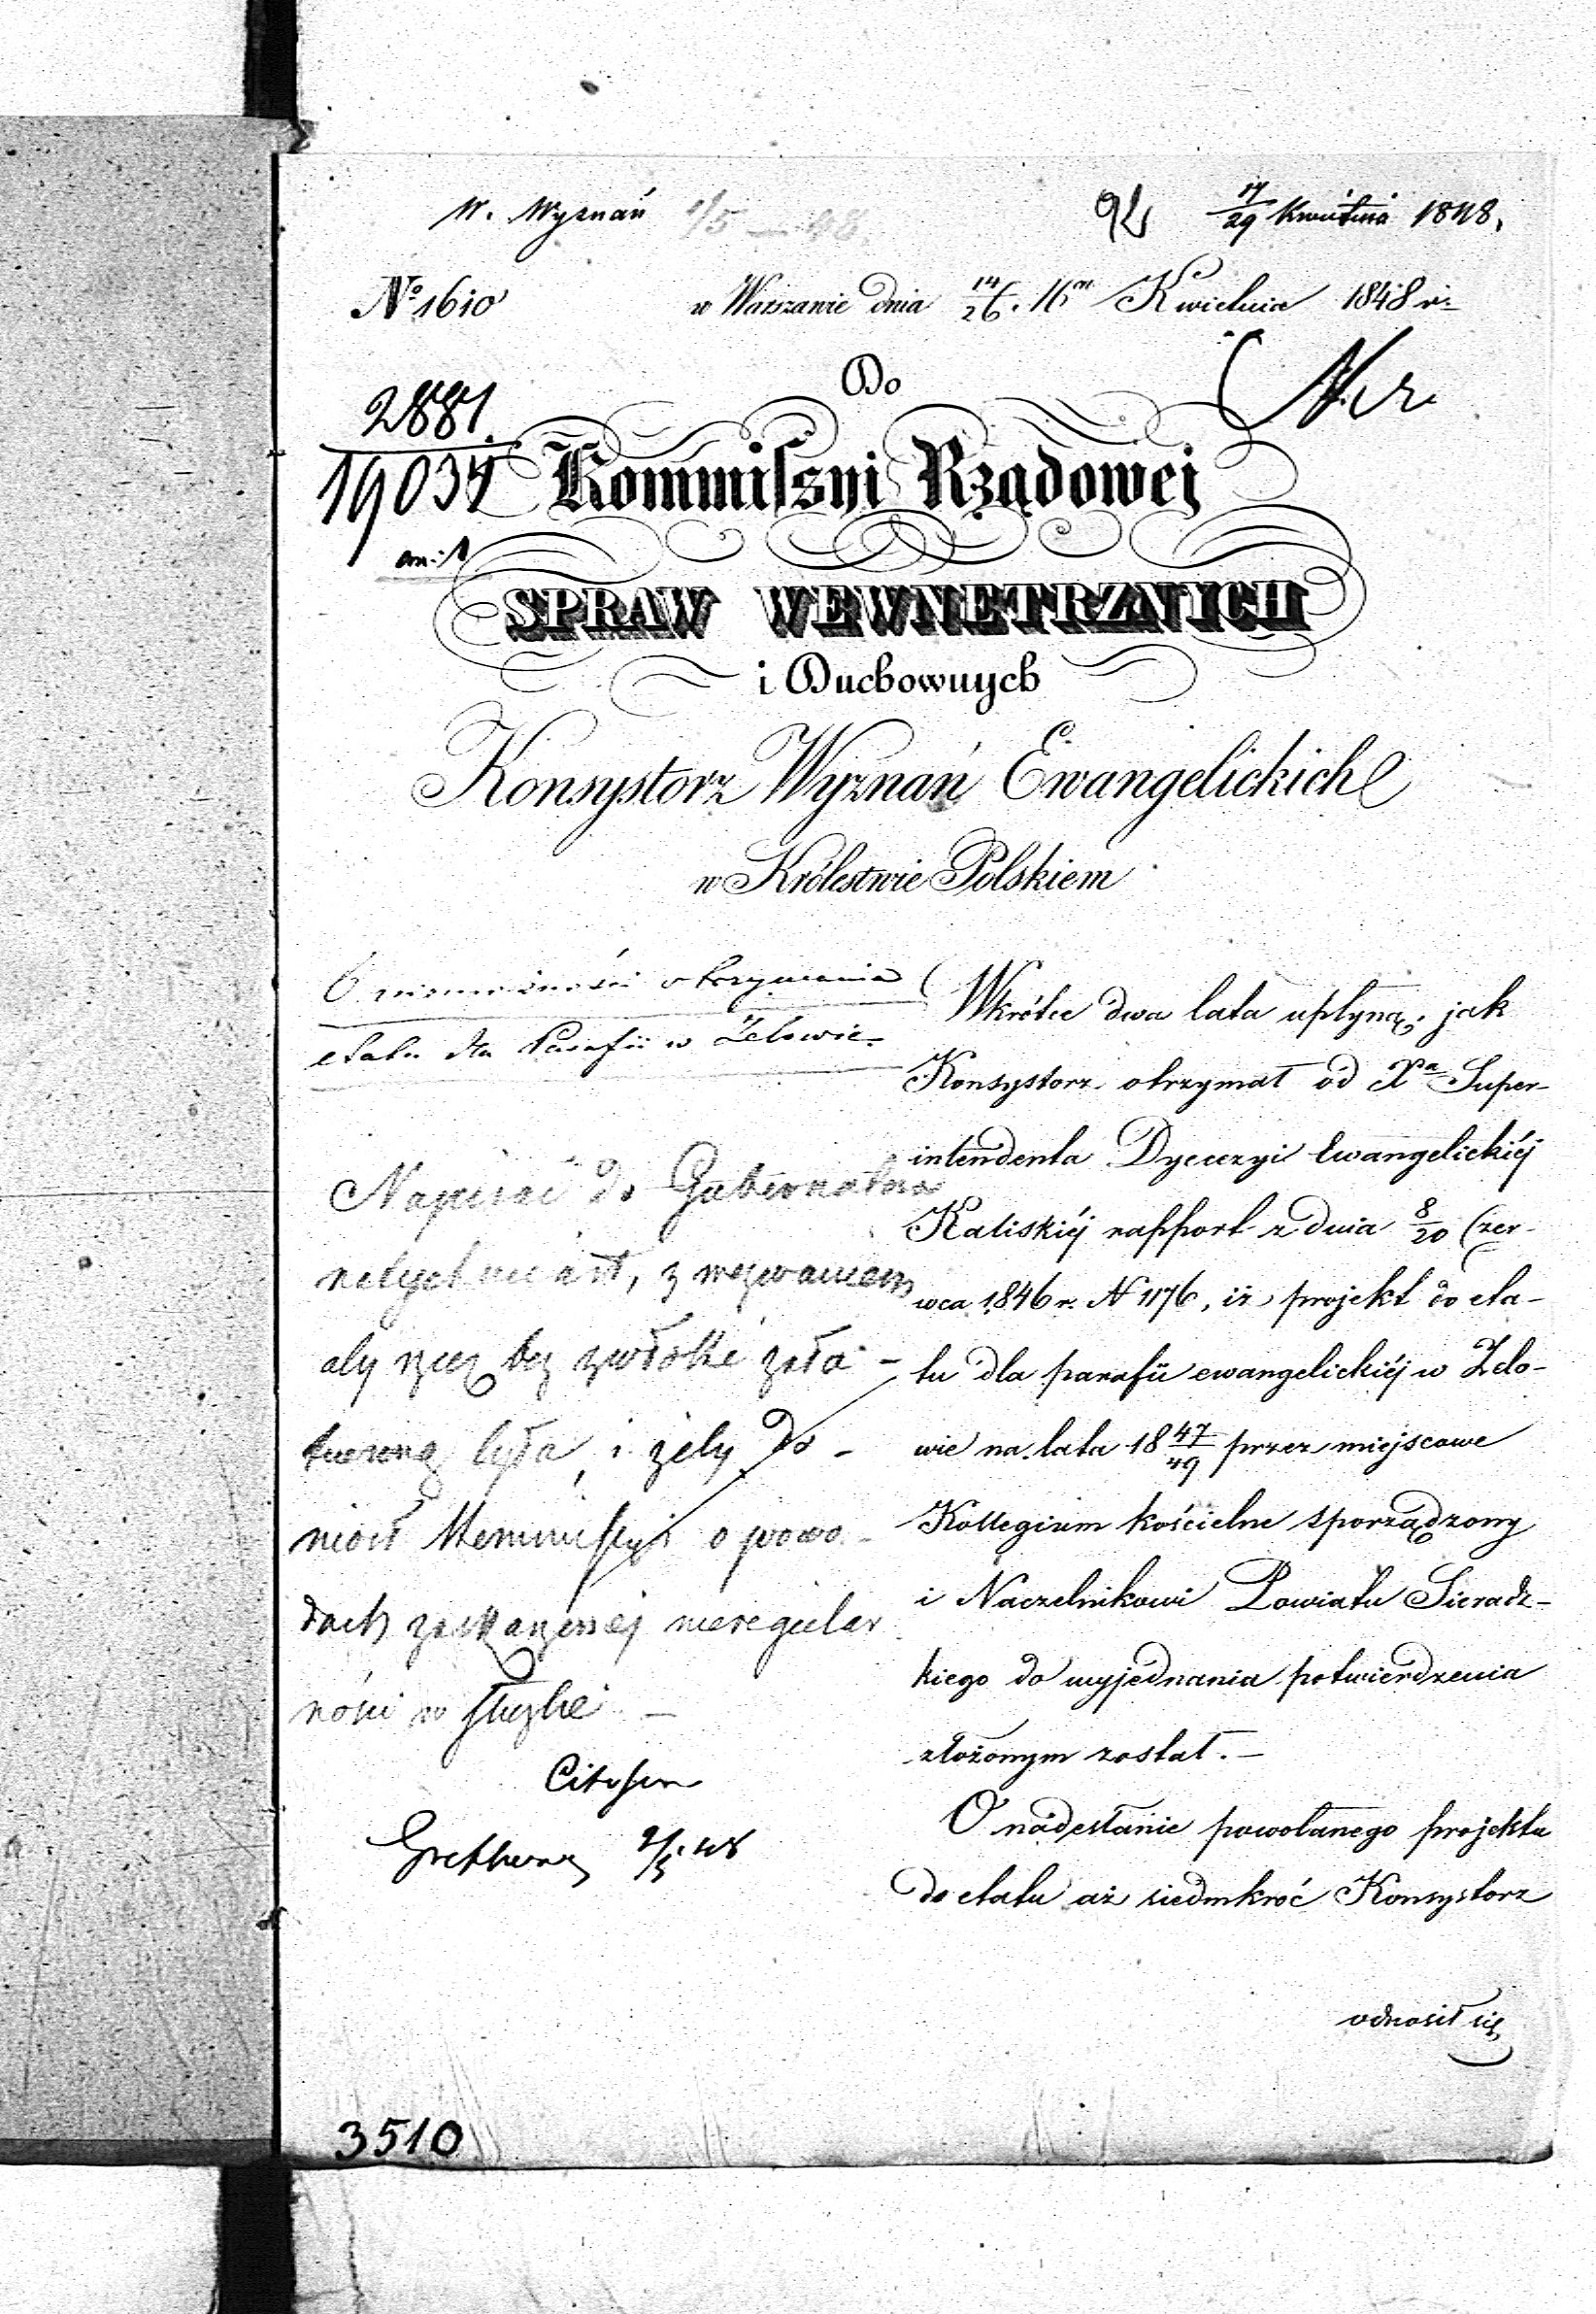 W. Wyznań
17/29 Kwietnia 1848.
No 1610
w Warszawie dnia 14/26. Km Kwietnia 1848 r.
Do
2881.
19034
Kommissyi Rządowej
SPRAW WEWNETRZNYCH
i Duchownych
Konsystorz Wyznań Ewangelickich
w Królestwie Polskiem
O niemożności otrzymania
etatu dla Parafii w Zelowie.
Napisać do Gubernatora
z wezwaniem
aby rzecz bez zwłoki zała-
twioną była, i żeby do-
niósł Kommissyi o powo-
dach zaskarżonej nieregular
ności w służbie —
Citissime
2/5 48
Wkrótce dwa lata upłyną, jak
Konsystorz otrzymał od Xa Super-
intendenta Dyecezyi Ewangelickiéj
Kaliskiéj rapport z dnia 8/20 Czer-
wca 1846 r. N 1176, iż projekt do eta-
tu dla parafii ewangelickiéj w Zelo-
wie na lata 18 47/49 przez miejscowe
Kollegium kościelne sporządzony
i Naczelnikowi Powiatu Sieradz-
kiego do wyjednania potwierdzenia
złożonym został. —
O nadesłanie powołanego projektu
do etatu aż siedmkroć Konsystorz
odnosił się
3510